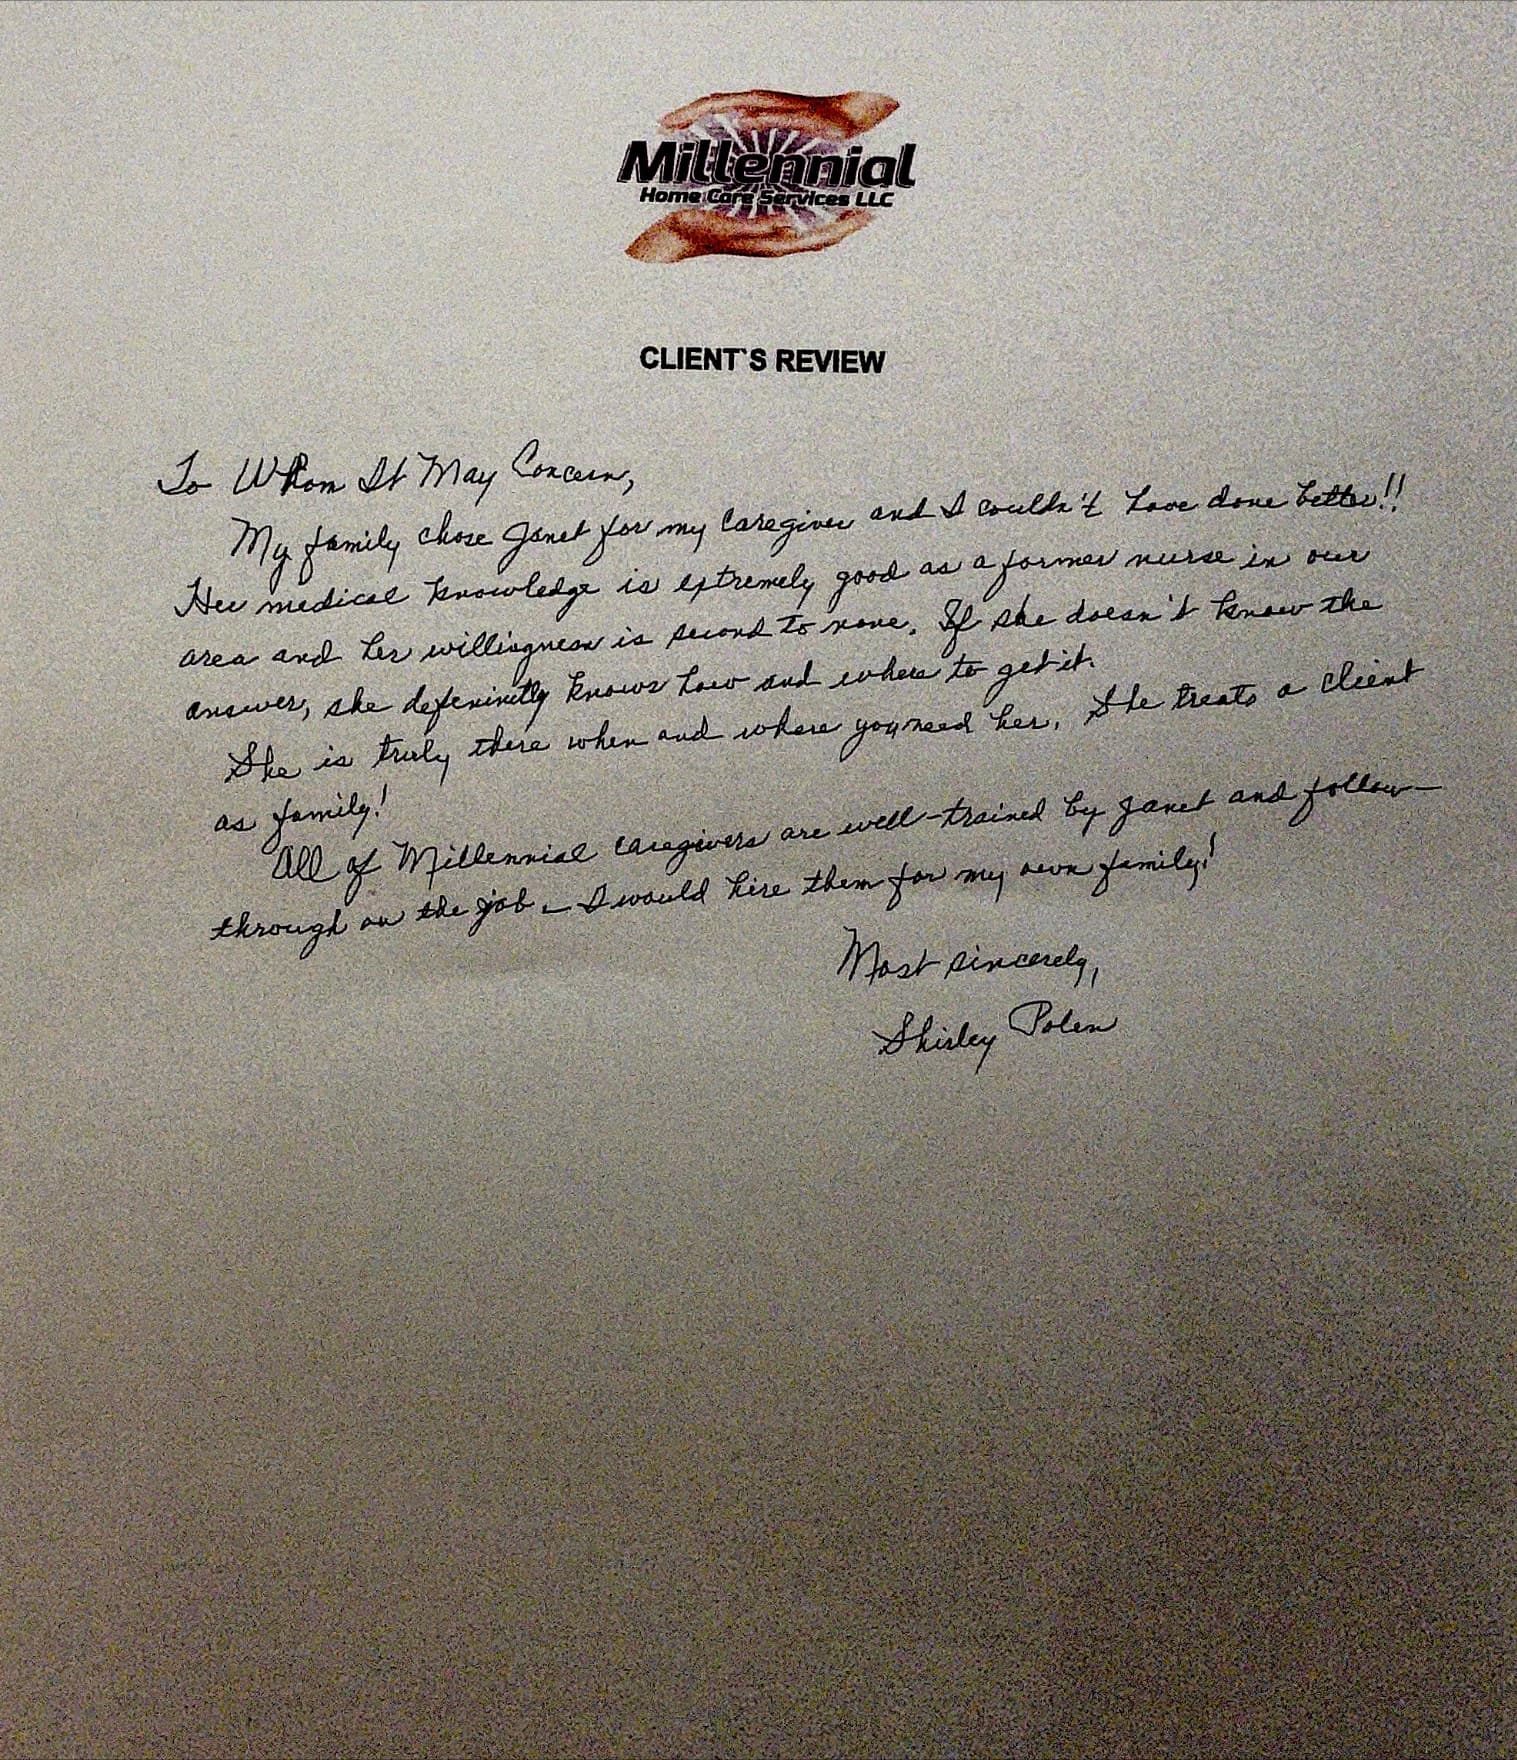 Millennial
Home Care Services LLC
CLIENT`S REVIEW
To Whom It May Concern,
My family chose Janet for my caregiver and I couldn't have done better!!
Her medical knowledge is extremely good as a former nurse in our
area and her willingness is second to none. If she doesn't know the
answer, she defeninitly knows how and where to get it.
She is truly there when and where you need her. She treats a client
as family!
All of Millennial caregivers are well-trained by Janet and follow-
through on the job - I would hire them for my own family!
Most sincerely,
Shirley Polen